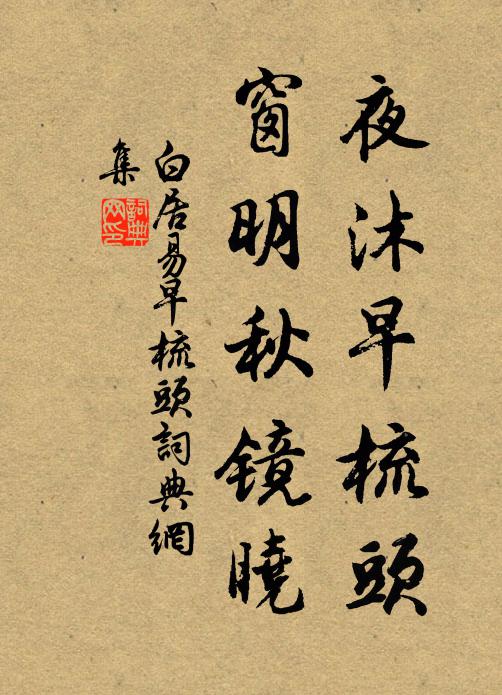 夜沐早梳頭
窗明秋镜曉
白居易早梳頭詞典網
集
詞典
网印